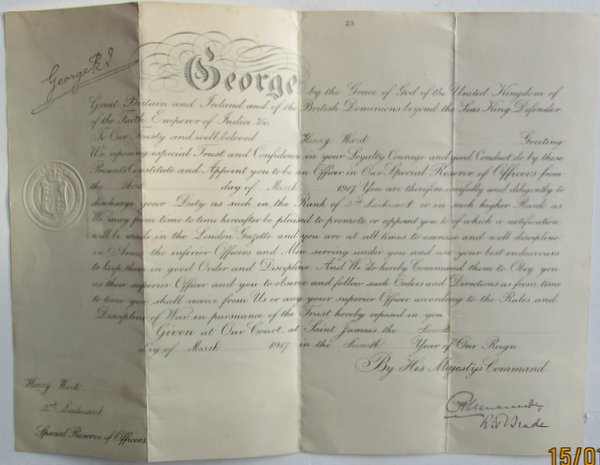 23
George R.I.
George
by the Grace of God of the United Kingdom of
Great Britain and Ireland and of the British Dominions beyond the Seas, King Defender
of the Faith, Emperor of India &c.
To Our Trusty and well beloved Henry Ward Greeting
We reposing especial Trust and Confidence in your Loyalty Courage and good Conduct do by these
Presents Constitute and Appoint you to be an Officer in Our Special Reserve of Officers from
the day of March 1917 You are therefore carefully and diligently to
discharge your Duty as such in the Rank of 2nd Lieutenant or in such higher Rank as
We may from time to time hereafter be pleased to promote or appoint you to of which a notification
will be made in the London Gazette and you are at all times to exercise and well discipline
in Arms the inferior Officers and Men serving under you and use your best endeavours
to keep them in good Order and Discipline. And We do hereby Command them to Obey you
as their superior Officer and you to observe and follow such Orders and Directions as from time
to time you shall receive from Us or any your superior Officer according to the Rules and
Discipline of War in pursuance of the Trust hereby reposed in you
Given at Our Court at Saint James's the
day of March 1917 in the Seventh Year of Our Reign
By His Majesty's Command.
Henry Ward
2nd Lieutenant
Special Reserve of Officers
R H Brade
15/0